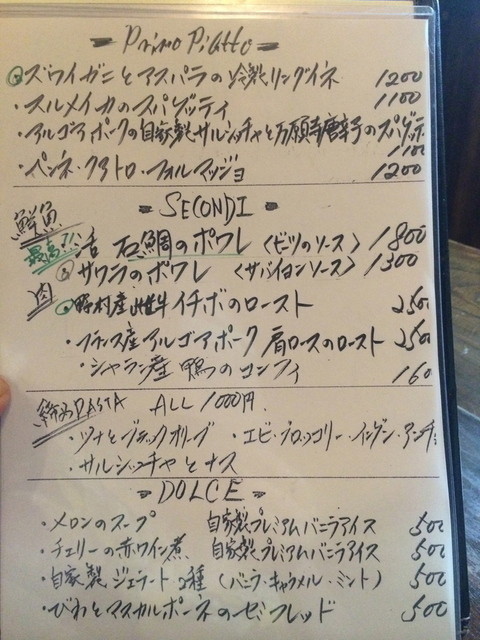 Primo Piatto
ズワイガニとアスパラの冷製リングイネ 1200
・スルメイカのスパゲッティ 1100
・アルゴアポークの自家製サルシッチャと万願寺唐辛子のスパゲッティ
1100
・ペンネ・クアトロ・フォルマッジョ 1200
SECONDI
鮮魚
最高!! 活 石鯛のポワレ 〈ビーツのソース〉 1800
サワラのポワレ 〈サバイヨンソース〉 1300
肉
野村産雌牛イチボのロースト 250
・フランス産アルゴアポーク 肩ロースのロースト 250
・シャラン産 鴨のコンフィ 160
PASTA ALL 1000円.
・ツナとブラックオリーブ ・エビ・ブロッコリー・インゲン・アンチョ
・サルシッチャとナス
DOLCE
・メロンのスープ 自家製プレミアムバニラアイス 500
・チェリーの赤ワイン煮 自家製プレミアムバニラアイス 500
・自家製 ジェラート2種 (バニラ・キャラメル・ミント) 500
・びわとマスカルポーネのセミフレッド 500